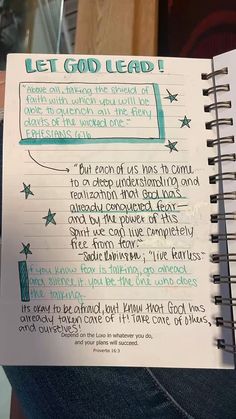 LET GOD LEAD!
"Above all, taking the shield of
faith with which you will be
able to quench all the fiery
darts of the wicked one."
EPHESIANS 6:16
"But each of us has to come
to a deep understanding and
realization that God has
already conquered fear —
and by the power of His
Spirit we can live completely
free from fear."
- Sadie Robertson; "live fearless"
If you know fear is talking, go ahead
and silence it. you be the one who does
the talking.
Its okay to be afraid, but know that God has
already taken care of it! Take care of others,
and ourselves!
Depend on the LORD in whatever you do,
and your plans will succeed.
Proverbs 16:3